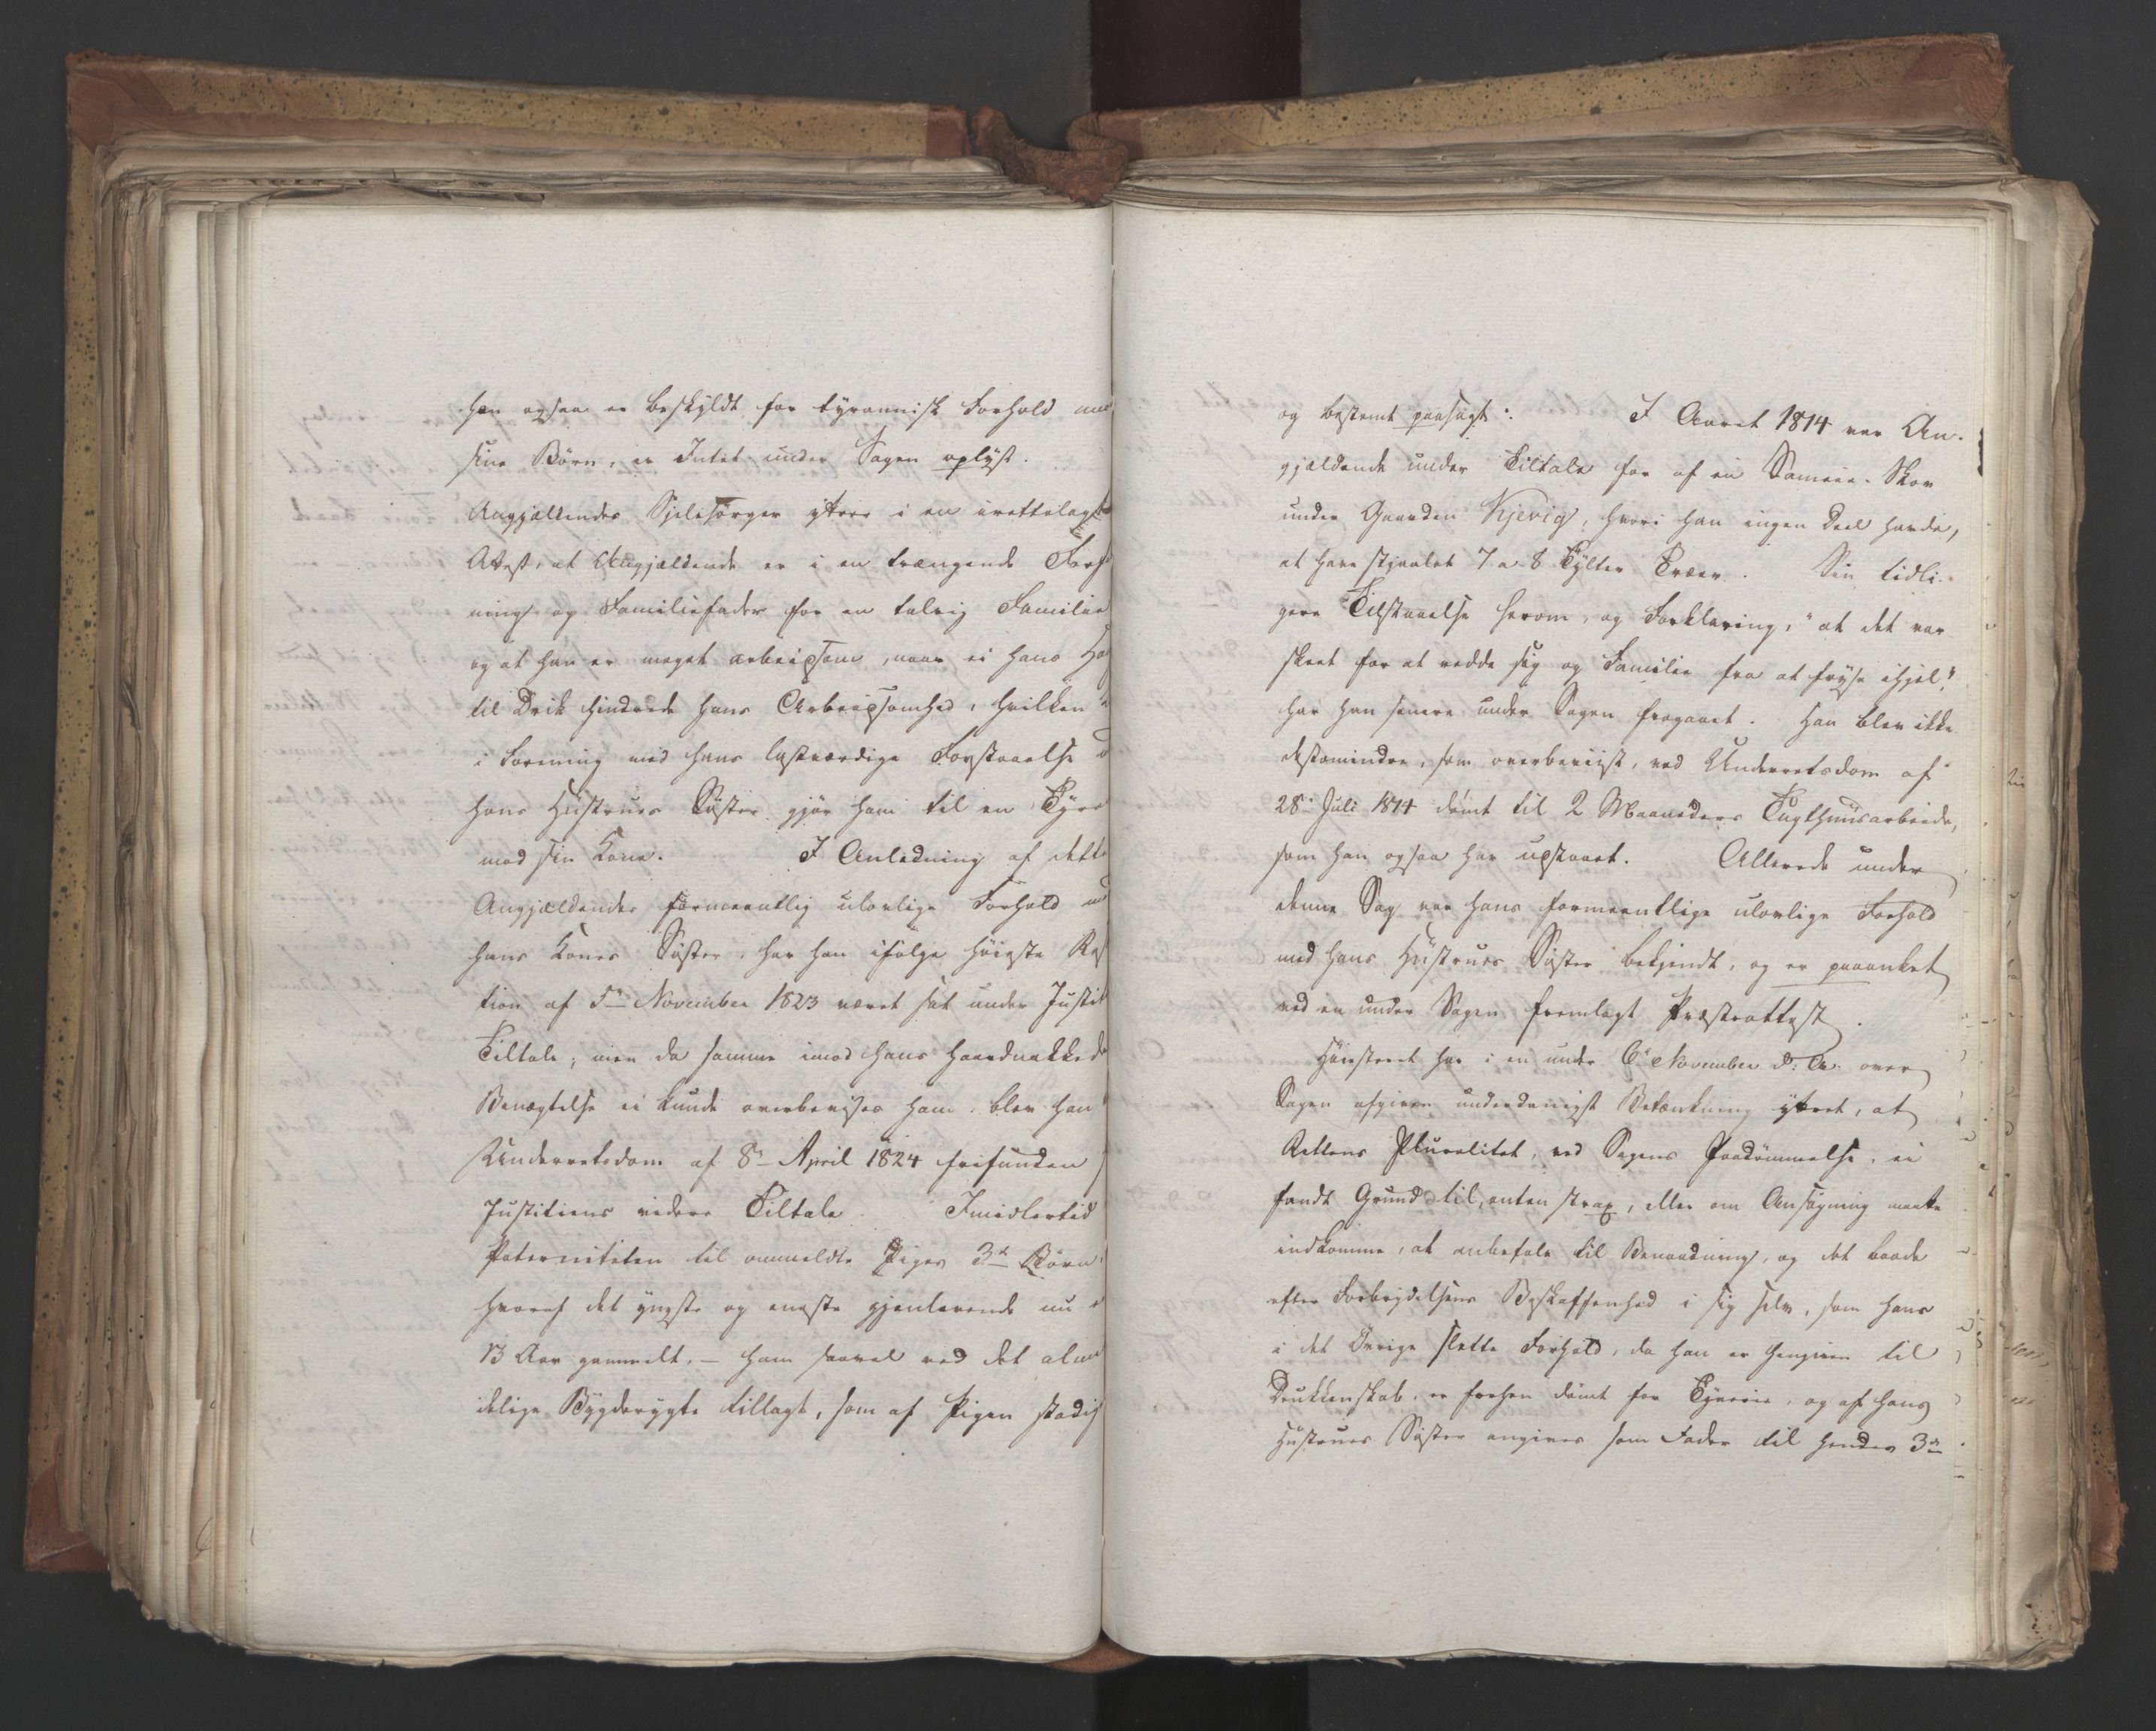 han ogsaa er beskyldt for tyrannisk Forhold mod
sine Børn, er Intet under Sagen oplyst.
Angjældendes Sjelesørger yttrer i en irettelagt
Attest, at Angjældende er i en trængende
og Familiefader for en talrig Familie
og at han er meget arbeidsom, naar ei hans
til Drik hindrede hans Arbeidsomhed, hvilken
i Forening med hans lastværdige Forstaaelse
hans Hustrues Søster gjør ham til en
mod sin Kone. I Anledning af dette
Angjældendes formeentlig ulovlige Forhold
hans Kones Søster, har han ifølge høieste
tion af 5te November 1823 været sat under
Tiltale, men da samme imod hans haardnakkede
Benægtelse ei kunde overbevises ham, blev han
Underretsdom af 8de April 1824 frifunden
Justitiens videre Tiltale. Imidlertid
Paterniteten til ommeldte Piges 3de Børn,
hvoraf det yngste og eneste gjenlevende nu
13 Aar gammelt, – ham saavel ved det
Bygderygte tillagt, som af Pigen
og bestemt paasagt. I Aaret 1814 var An-
gjældende under Tiltale for af en Sameie-Skov
under Gaarden Kjevig, hvori han ingen Deel havde,
at have stjaalet 7 a 8 Tylter Træer. Sin tidli-
gere Tilstaaelse herom, og Forklaring, "at det var
skeet for at redde sig og Familie fra at fryse ihjel",
har han senere under Sagen fragaaet. Han blev ikke
destomindre, som overbeviist, ved Underretsdom af
28 Juli 1814 dømt til 2 Maaneders Tugthuusarbeide,
som han ogsaa har udstaaet. Allerede under
denne Sag var hans formeentlige ulovlige Forhold
med hans Hustrues Søster bekjendt, og er paaanket
ved en under Sagen fremlagt Præsteattest.
Høiesteret har i en under 6te November d: A: over
Sagen afgiven underdanigst Betænkning yttret, at
Rettens Pluralitet, ved Sagens Paadømmelse, ei
fandt Grund til, enten strax, eller om Ansøgning maatte
indkomme, at anbefale til Benaadning, og det baade
efter Forbrydelsens Beskaffenhed i sig selv, som hans
i det Øvrige slette Forhold, da han er hengiven til
Drukkenskab, er forhen dømt for Tyverie, og af hans
Hustrues Søster angives som Fader til hendes 3de